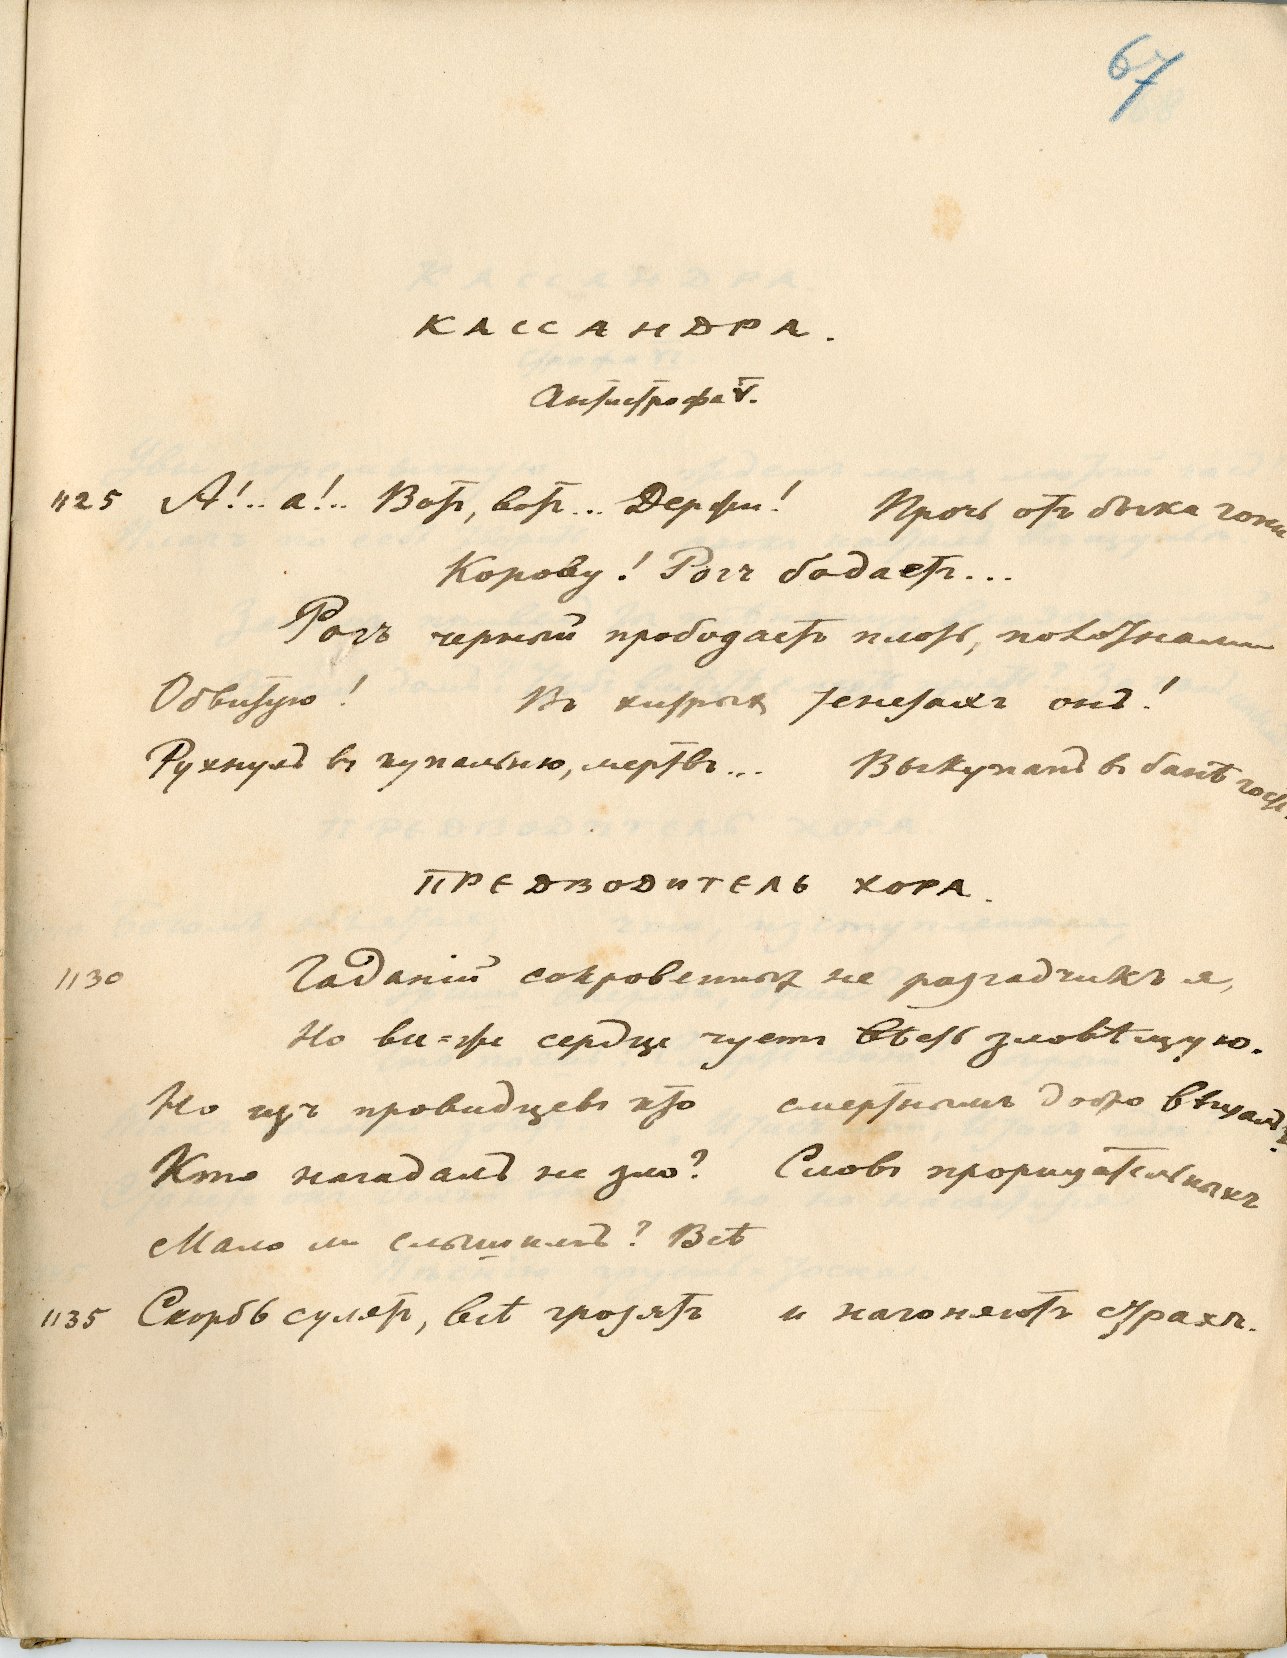 67
КАССАНДРА.
Антистрофа V.
1125 А!.. а!.. Вотъ, вотъ... Держи! Прочь отъ быка гони
Корову! Рогъ бодаетъ...
Рогъ черный прободаетъ плоть, полотнами
Обвитую! Въ хитрыхъ тенетахъ онъ!
Рухнулъ въ купальню, мертвъ... Выкупанъ въ банѣ гость.
ПРЕДВОДИТЕЛЬ ХОРА.
1130 Гаданій сокровенныхъ не разгадчикъ я,
Но вѣ=же сердце чуетъ вѣсть зловѣщую.
Но изъ провидцевъ кто смертнымъ добро вѣщалъ?
Кто нагадалъ не зло? Словъ прорицательныхъ
Мало ли слышимъ? Всѣ
1135 Скорбь сулятъ, всѣ грозятъ и нагоняютъ страхъ.